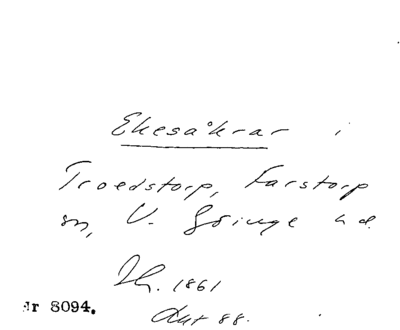 Ekesåkrar i
Troedstorp, Farstorp
sn, V. Göinge hd.
1861
Akt 88.
Nr 8094.